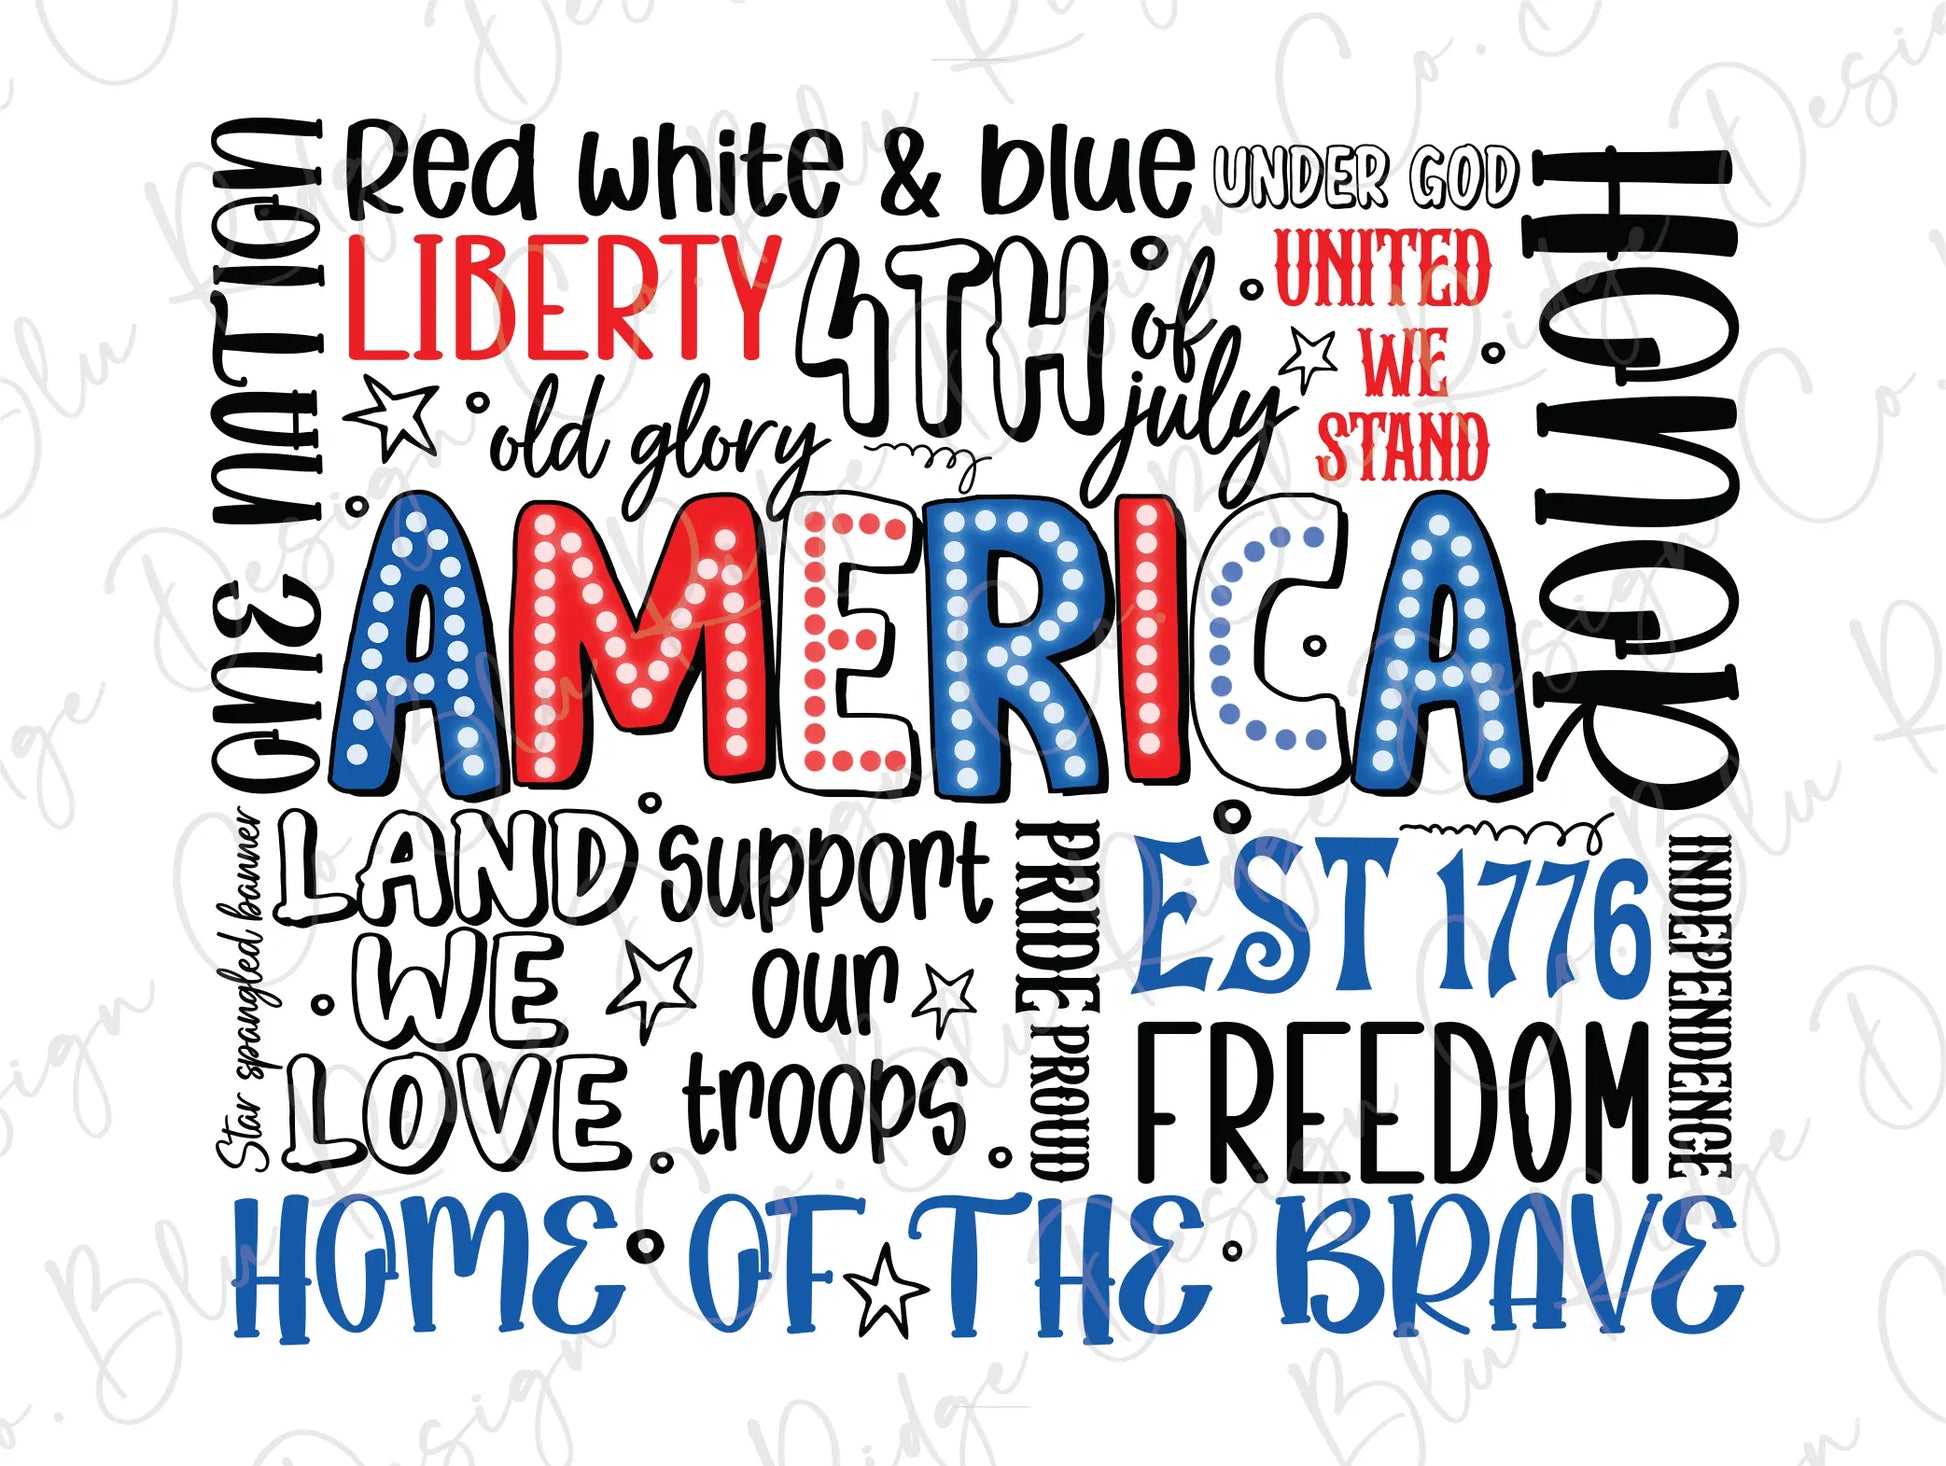 ONE NATION
Red white & blue
UNDER GOD
HONOR
LIBERTY
4TH
of
july
UNITED
WE
STAND
old glory
AMERICA
Star spangled banner
LAND
WE
LOVE
support
our
troops
PRIDE
PROUD
EST 1776
FREEDOM
INDEPENDENCE
HOME OF THE BRAVE
Blu Ridge Design Co.